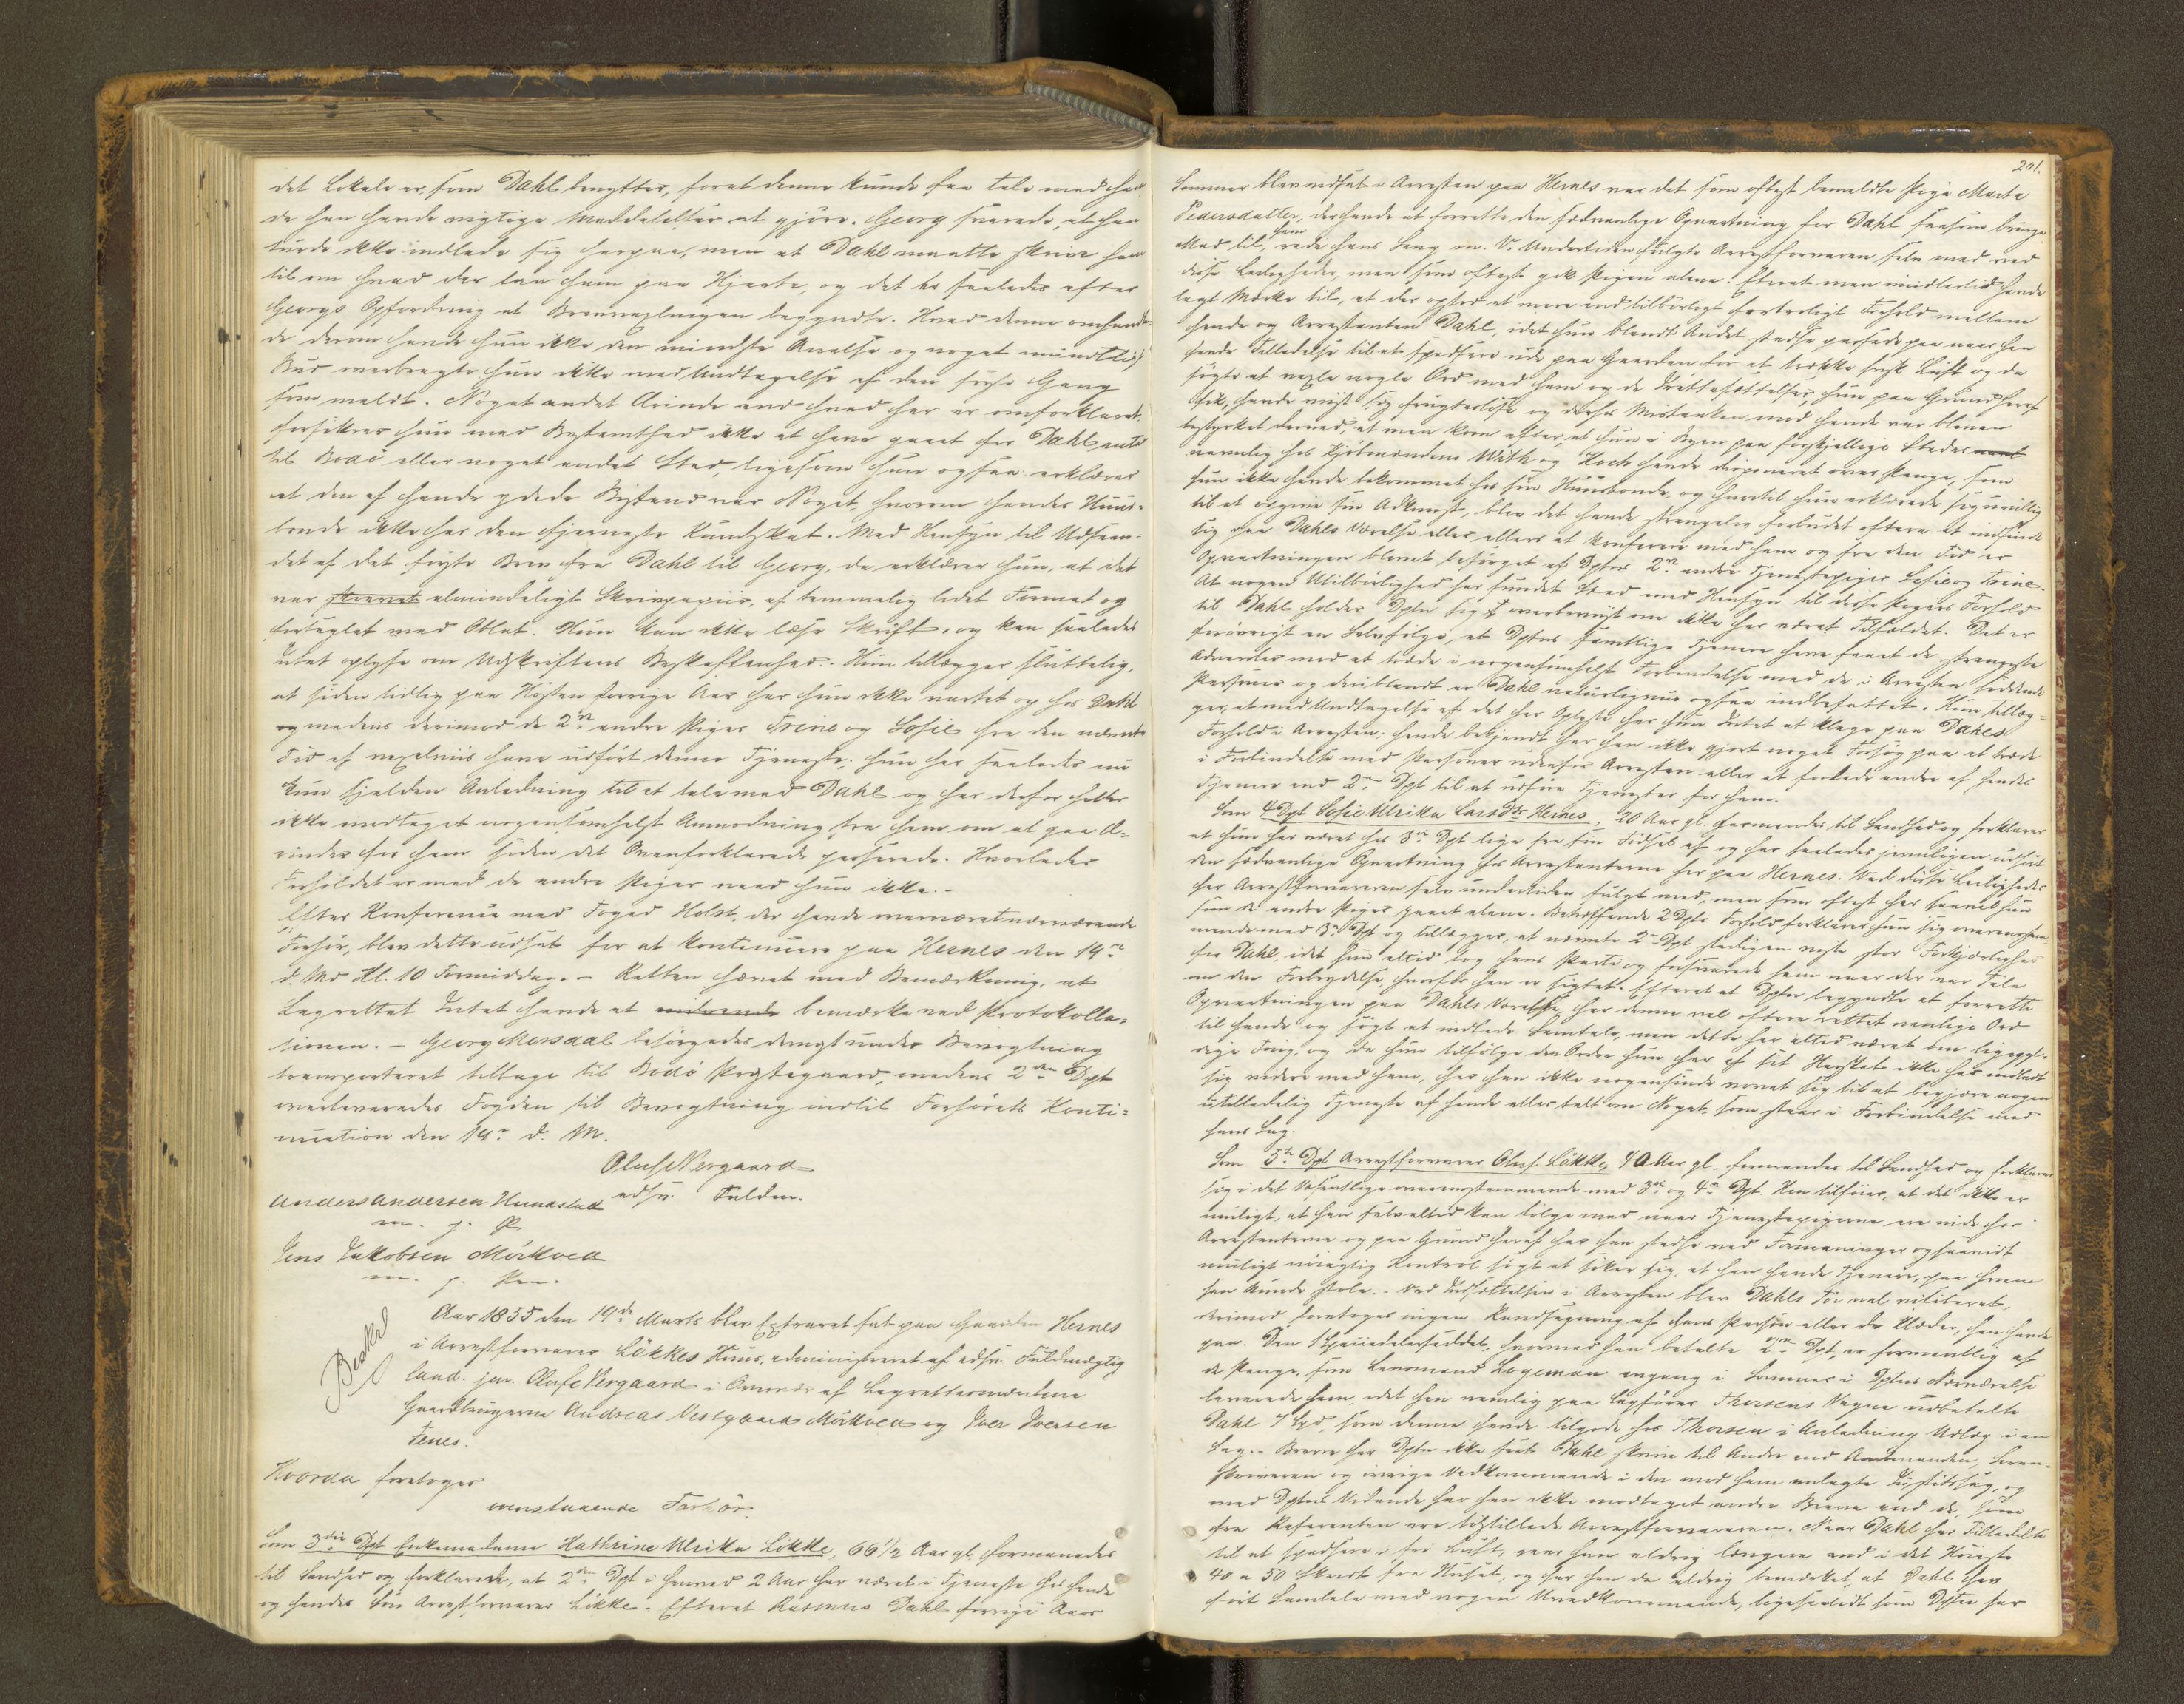 det Lokale er, som Dahl benytter, foratdenne kunde faa tale med ham
da han havde vigtige Meddelelser at gjöre. Georg svarede, at han
turde ikke indlade sig herpaa, men at Dahl maatte skrive ham
til om hvad der laa ham paa Hjerte, og det er saaledes efter
Georgs Opfordring at Brevvexlingen begyndte. Hvad denne omhand-
de derom havde hun ikke den mindste Anelse og noget mundtligt
Bud overbragte hun ikke med Undtagelse af den förste Gang
som meldt. Noget andet Ærinde end hvad her er omforklaret
forsikrer hun med Bestemthed ikke at have gaaet for Dahl enten
til Bodö eller noget andet Sted, ligesom hun ogsaa erklærer
at den af hende ydede Bistand var Noget, hvorom hendes Huus-
bonde ikke har den fjerneste Kundskab. Med Hensyn til Udseen-
det af det förste Brev fra Dahl til Georg, da erklærer hun, at det
var skrevet almindeligt Skrivpapiir, af temmelig lidet Format og
forseglet med Oblat. Hun kan ikke læse Skrift, og kan saaledes
intet oplyse om Udskriftens Beskaffenhed. Hun tillægger sluttelig,
at siden tidlig paa Hösten forrige Aar har hun ikke vartet op hos Dahl
og medens derimod de 2de andre Piger Trine og Sofie fra den nævnte
Tid af vexelviis have udfört denne Tjeneste; hun har saaledes nu
kun sjelden Anledning til at tale med Dahl og har derfor heller
ikke modtaget nogensomhelst Anmodning fra ham om at gaa Æ-
rinder for ham siden det Ovenforklarede passerede. Hvorledes
Forholdet er med de andre Piger veed hun ikke.-
Efter Konference med Foged Holst, der havde overværet nærværende
Forhör, blev dette udsat for at kontinuere paa Hernes den 19de
d. Md Kl. 10 Formiddag. - Retten hævet med Bemærkning, at
Lagrettet Intet havde at bemærke ved Protokolla-
tionen. - Georg Mersdal besörgedes derngst under Bevogtning
transporteret tilbage til Bodö Prestegaard, medens 2den Dpt
overleveredes Fogden til Bevogtning indtil Forhörets Konti-
nuation den 19de d. M.
Oluf Nergaard
edsv. Fuldm.
Anders Andersen Hunastad
m. f. P.
Jens Jakobsen Mörkved
m. f. Pen.
Beskd
Aar 1855 den 19de Marts blev Extraret sat paa Gaarden Hernes
i Arrestforvarer Lökkes Huus, administreret af edsv. Fuldmægtig
Cand. jur. Oluf Nergaard i Overvær af Lagrettesmændene
Gaardbrugerne Andreas Vestgaard Mörkved og Iver Iversen
Fenes.
Hvorda foretoges
ovenstaaende Forhör.
Som 3die Dpt Enkemadame Kathrine Ulrika Lökke, 66 1/2 Aar gl, formanedes
til Sandhed og forklarede, at 2den Dpt i henved 2 Aar har været i Tjeneste hos hende
og hendes Sön Arrestforvarer Lökke. Efterat Rasmus Dahl forrige Aars
201.
Sommer blev indsat i Arresten paa Hernes var det som oftest bemeldte Pige Marte
Pedersdatter, der havde at forrette den sædvanlige Opvartning for Dahl saasom bringe
Mad til ham, rede hans Seng m. V. Undertiden fulgte Arrestforvaren selv med ved
disse Leiligheder, men som oftest gik Pigen alene. Efterat man imidlertid havde
lagt Mærke til, at der opstod et mere end tilbörligt fortroligt Forhold mellem
hende og Arrestanten Dahl, idet hun blandt Andet stadse passede paa naar han
havde Tilladelse til at spadsere ude paa Gaarden for at trække frisk Luft og da
sögte at vexle nogle Ord med ham og de Irettesættelser, hun paa Grund heraf
fik, havde viist sig frugteslöse og denne Mistanken mod hende var bleven
bestyrket derved, at man kom efter, at hun i Byen paa forskjellige Steder
navnlig hos Kjöbmændene With og Koch havde disponeret over Penge, som
hun ikke havde bekommet hos sin Huusbonde, og hvortil hun erklærede sig uvillig
til at opgive sin Adkomst, blev det hende strengelig forbudet oftere at indfinde
sig paa Dahls Værelse eller ellers at konferere med ham og fra den Tid er
Opvartningen blevet besörget af Dptens 2de andre Tjenestepiger Sofie og Trine.
At nogen Utilbörlighed har fundet Sted med Hensyn til disse Pigers Forhold
til Dahl holder Dpten sig overbeviist om ikke har været Tilfældet. Det er
forövrigt en Selvfölge, at Dptens samtlige Tjenere have faaet de strengeste
Advarsler mod at træde i nogensomhelst Forbindelse med de i Arresten siddende
Personer og deriblandt er Dahl naturligviis ogsaa indbefattet. Hun tillæg-
ger, at med Undtagelse af det her Oplyste har hun Intet at klage paa Dahls
Forhold i Arresten; hende bekjendt har han ikke gjort noget Forsög paa at træde
i Forbindelse med Personer udenfor Arresten eller at forlede andre af hendes
Tjenere end 2den Dpt til at udföre Tjenester for ham.
Som 4 Dpt Sofie Ulrika Larsdtr Hernes, 20 Aar gl. formanedes til Sandhed og forklarer
at hun har været hos 3die Dpt lige fra sin Födsel af og har saaledes jevnligen udfört
den sædvanlige Opvartning hos Arrestanterne her paa Hernes. Ved disse Leiligheder
har Arrestforvareren selv undertiden fulgt med, men som oftest har saavel hun
som de andre Piger gaaet alene. Betræffende 2 Dpts Forhold forklarer hun sig overensstem-
mende med 3de Dpt og tillægger, at nævnte 2den Dpt stedligen viste stor Forkjærlighed
for Dahl, idet hun altid tog hans Parti og forsvarede ham naar der var Tale
om den Forbrydelse, hvorfor han er sigtet. Efterat Dpten begyndte at forrette
Opvartningen paa Dahls Værelse har denne vel oftere rettet venlige Ord
til hende og sögt at indlede Samtale, men dette har altid været om ligegyl-
dige Ting, og da hun tilfölge den Ordre hun har af sit Herskab ikke har indladt
sig videre med ham, har han ikke nogensinde vovet sig til at begjære nogen
utilladelig Tjeneste af hende eller talt om Noget, som staar i Forbindelse med
hans Sag.
Som 5te Dpt Arrestforvarer Oluf Lökke, 40 Aar gl. formanedes til Sandhed og forklarer
sig i det Væsentlige overensstemmende med 3die og 4de Dpt. Han tilföier, at det ikke er
muligt, at han selv altid kan fölge med naar Tjenestepigerne ere inde hos
Arrestanterne og paa Grund heraf har han stadse ved Formaninger og saavidt
muligt nöiagtig Kontrol sögt at sikre sig, at han havde Tjenere, paa hvem
han kunde stole. - Ved Indsættelsen i Arresten blev Dahls Töi vel visiteret,
derimod foretoges ingen Randsagning af hans Person eller de Klæder, han havde
paa. Den 1 Speciedalerseddel, hvormed han betalte 2den Dpt, er formentlig af
de Penge, som Lensmand Logeman engang i Sommer i Dptens Nærværelse
leverede ham, idet han nemlig paa Sagförer Thorsens Vegne udbetalte
Dahl 7 Spd, som denne havde tilgode hos Thorsen i Anledning Udlæg i en
Sag. - Breve har Dpten ikke seet Dahl skrive til Andre end Amtmanden, Soren-
skriveren og övrige Vedkommende i den mod ham anlagte Justitssag, og
med Dptens Vidende har han ikke modtaget andre Breve end de, som
fra Referenten ere tilstillede Arrestforvareren. Naar Dahl har Tilladelse
til at spadsere i fri Luft, gaar han aldrig længere end i det Höieste
40 a 50 Skridt fra Huset, og har han da aldrig bemærket, at Dahl har
fört Samtale med nogen Uvedkommende, ligesaalidt som Dpten har